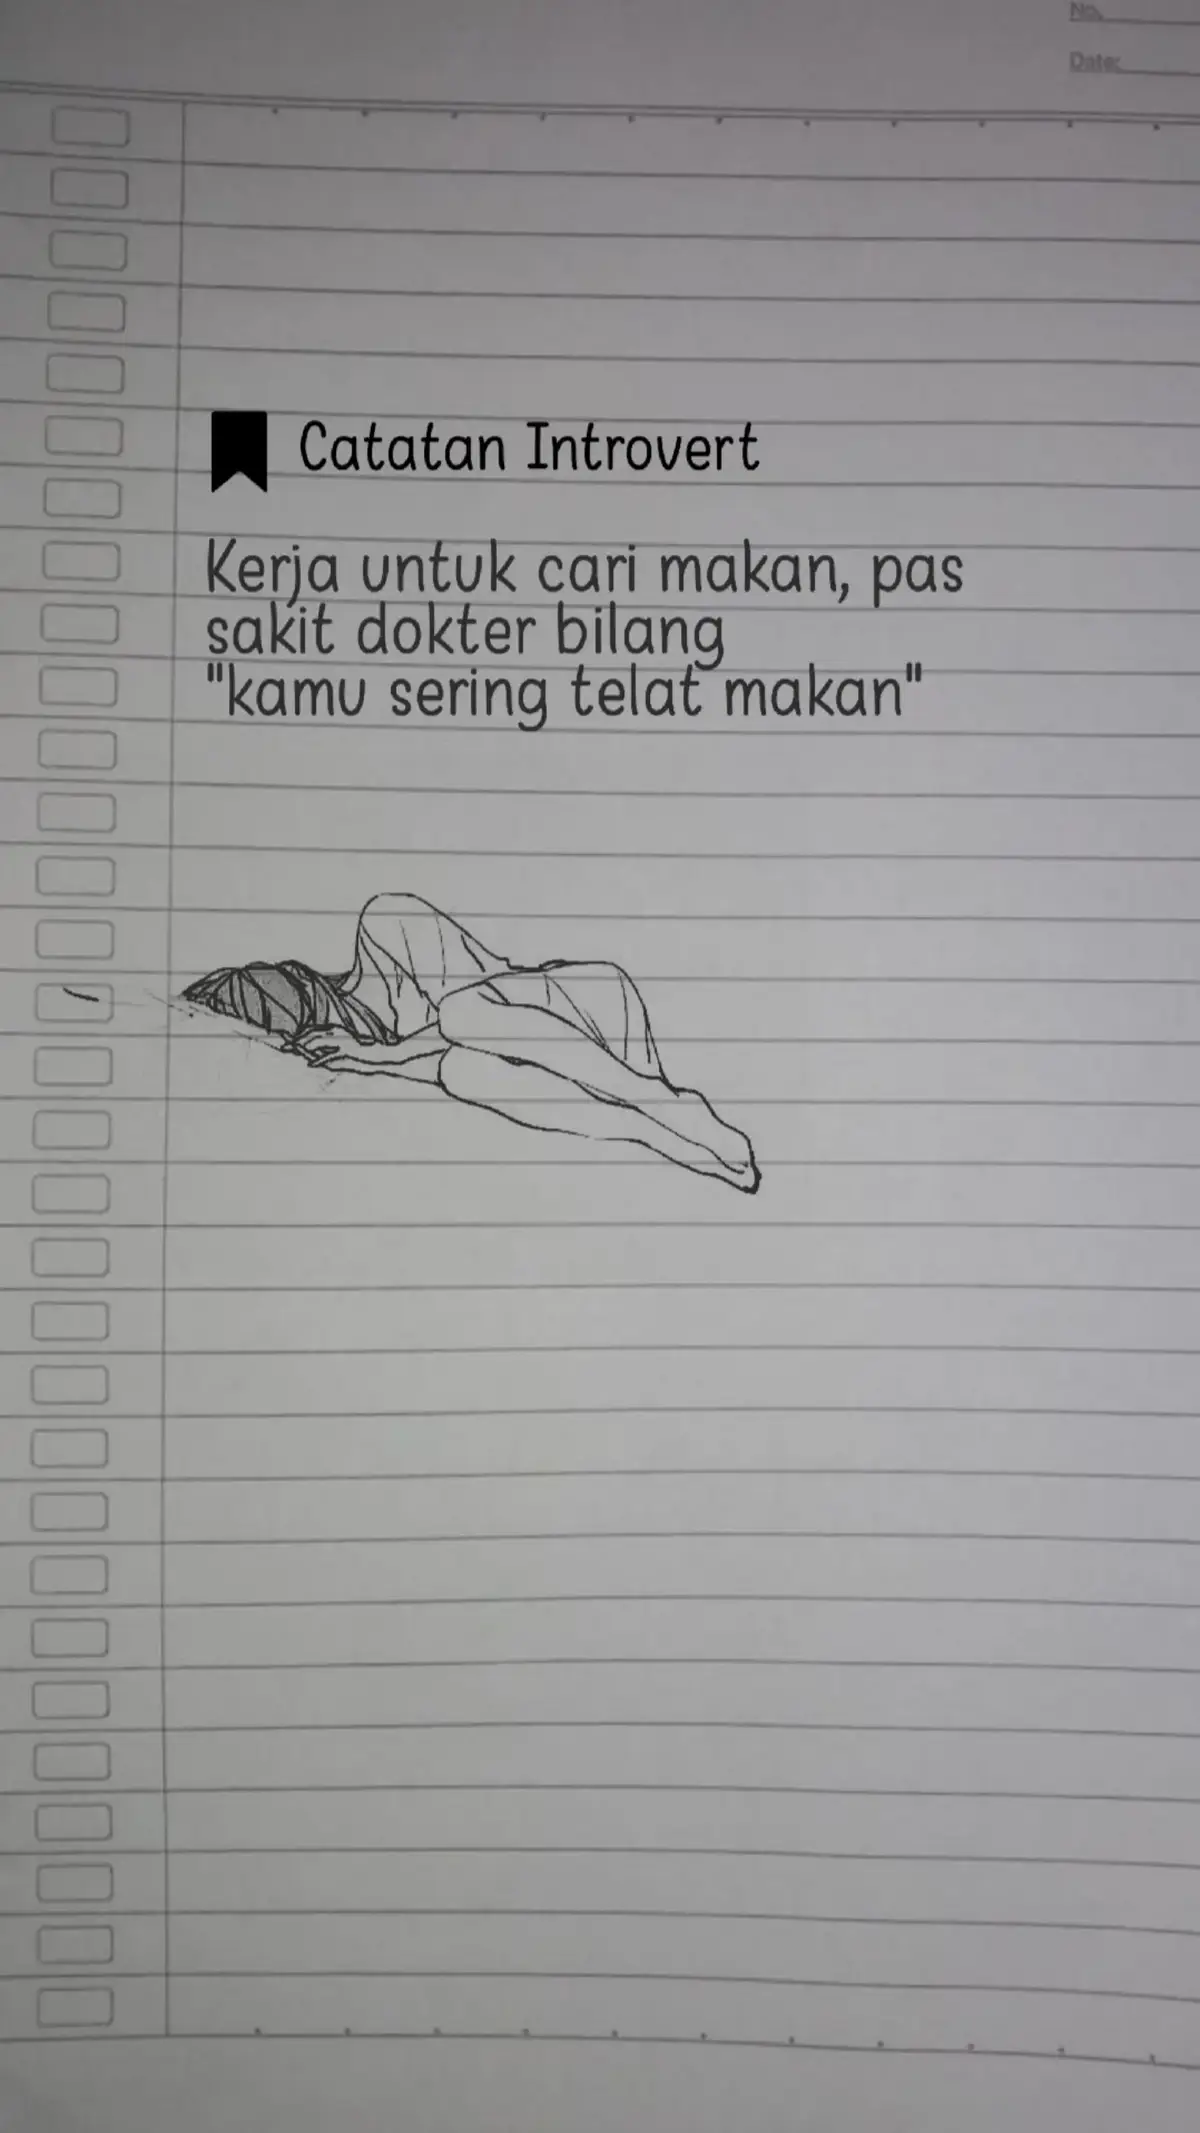 No.
Date:
Catatan Introvert
Kerja untuk cari makan, pas
sakit dokter bilang
"kamu sering telat makan"